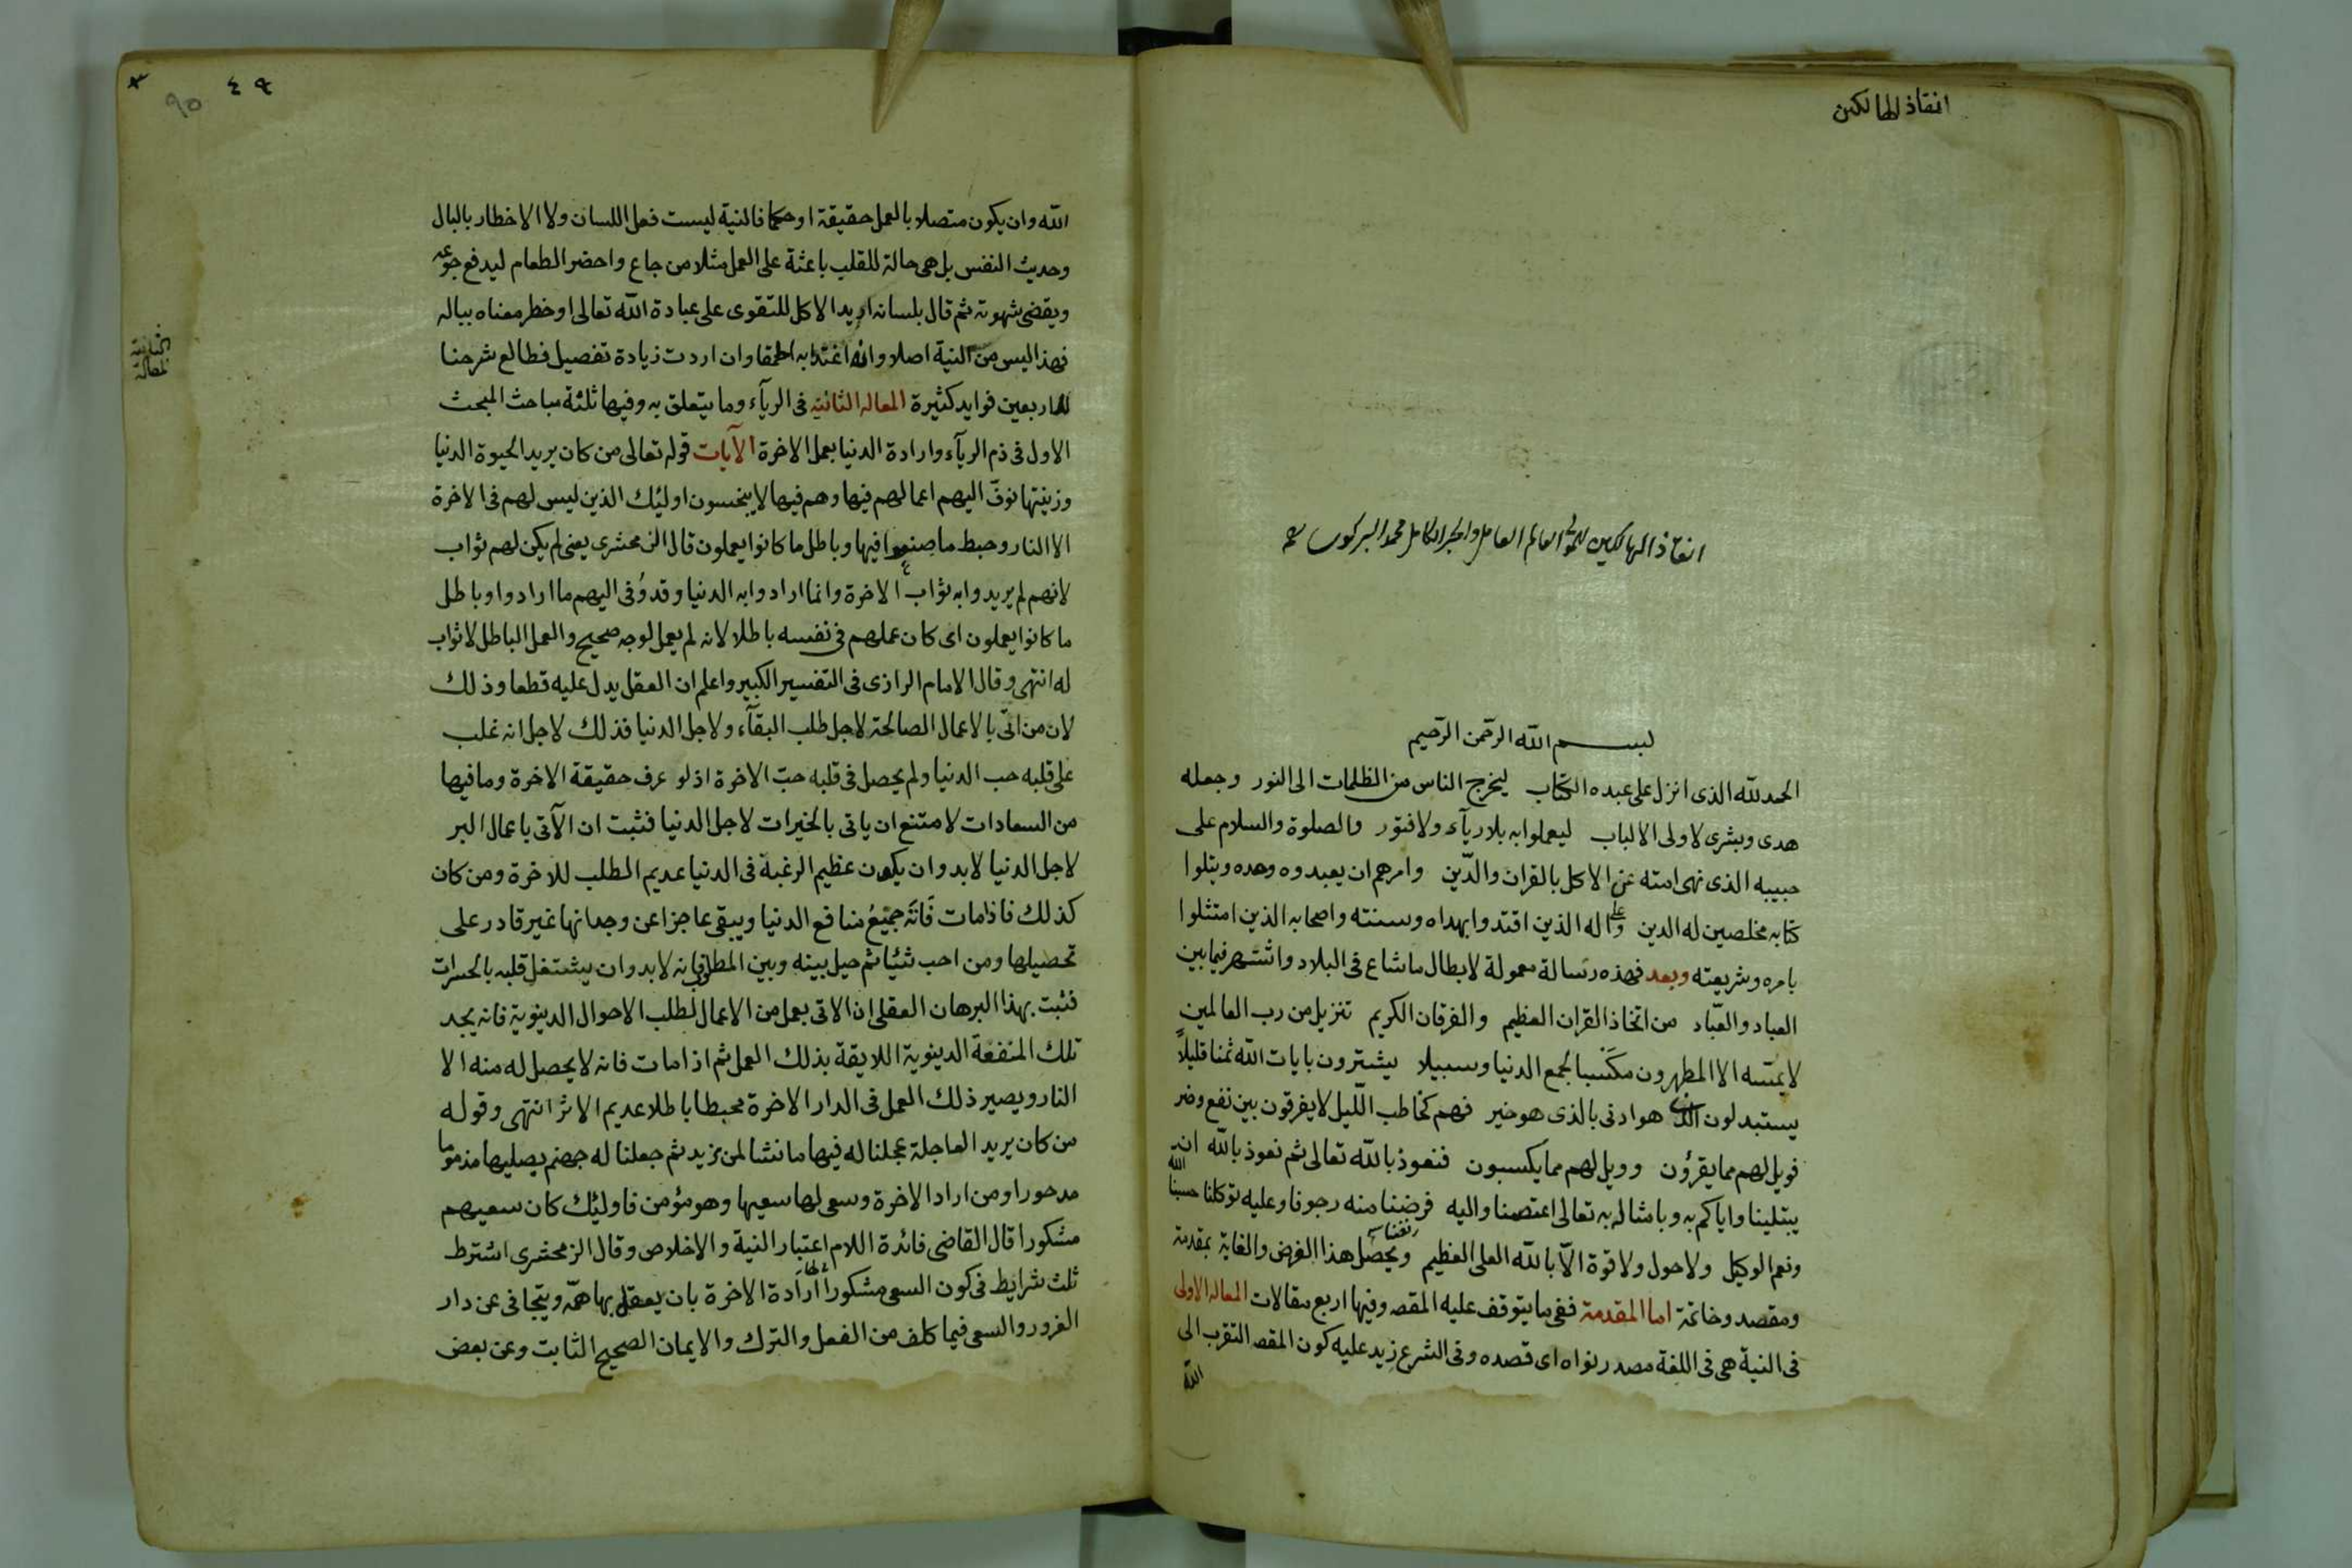 انقاذ الهالكين
انقاذ الهالكين للمولى العالم العامل والحبر الكامل محمد البركوى
بسم الله الرحمن الرحيم
الحمد لله الذى انزل على عبده الكتاب ليخرج الناس من الظلمات الى النور وجعله
هدى وبشرى لاولى الالباب ليعملوا به بلا رياء ولا فتور والصلوة والسلام على
حبيبه الذى نهى امته عن الاكل بالقران والدّين وامرهم ان يعبدوه وحده ويتلوا
كتابه مخلصين له الدين وعلى اله الذين اقتدوا بهداه وسنته واصحابه الذين امتثلوا
بامره وشريعته وبعد فهذه رسالة معمولة لابطال ما شاع فى البلاد واشتهر فيما بين
العباد والعبّاد من اتخاذ القران العظيم والفرقان الكريم تنزيل من رب العالمين
لا يمسّه الا المطهرون مكسبا لجمع الدنيا وسبيلا يشترون بايات الله ثمنا قليلاً
يستبدلون الذى هو ادنى بالذى هو خير فهم كخاطب اللّيل لا يفرقون بين نفع وضر
فويل لهم مما يقرؤن وويل لهم مما يكسبون فنعوذ بالله تعالى ثم نعوذ بالله ان
يبتلينا واياكم به وبامثاله به تعالى اعتصمنا واليه فوضنا منه رجونا وعليه توكلنا حسبنا الله
ونعم الوكيل ولا حول ولا قوة الّا بالله العلى العظيم ويحصل هذا الغرض والغاية بمقدمة
ومقصد وخاتمة اما المقدمة ففى ما يتوقف عليه المقص وفيها اربع مقالات المقالة الاولى
فى النية هى فى اللغة مصدر نواه اى قصده وفى الشرع زيد عليه كون المقص التقرب الى
الله
٤٩
٩٥
الله وان يكون متصلا بالعمل حقيقة او حكما فالنية ليست فعل اللسان ولا الاخطار بالبال
وحديث النفس بل هى حالة للقلب باعثة على العمل مثلا من جاع واحضر الطعام ليدفع جوعه
ويقضى شهوته ثم قال بلسانه اريد الاكل للتقوى على عبادة الله تعالى او خطر معناه بباله
فهذا ليس من النية اصلا وان اغتر به الحمقا وان اردت زيادة تفصيل فطالع شرحنا
للاربعين فوايد كثيرة المقالة الثانية فى الرياء وما يتعلق به وفيها ثلثة مباحث المبحث
الثانية
المقالة
الاول فى ذم الرياء وارادة الدنيا بعمل الاخرة الآيات قوله تعالى من كان يريد الحيوة الدنيا
وزينتها نوفّ اليهم اعمالهم فيها وهم فيها لا يبخسون اولئك الذين ليس لهم فى الاخرة
الا النار وحبط ما صنعوا فيها وباطل ما كانوا يعملون قال الزمحشرى يعنى لم يكن لهم ثواب
لانهم لم يريدوا به ثواب الاخرة وانما ارادوا به الدنيا وقد وُفى اليهم ما ارادوا وباطل
ما كانوا يعملون اى كان عملهم فى نفسه باطلا لانه لم يعمل لوجه صحيح والعمل الباطل لا ثواب
له انتهى وقال الامام الرازى فى التفسير الكبير واعلم ان العقل يدل عليه قطعا وذلك
لان من اتى بالاعمال الصالحة لاجل طلب البقاء ولاجل الدنيا فذلك لاجل انه غلب
على قلبه حب الدنيا ولم يحصل فى قلبه حبّ الاخرة اذ لو عرف حقيقة الاخرة وما فيها
من السعادات لامتنع ان ياتى بالخيرات لاجل الدنيا فثبت ان الآتى باعمال البر
لاجل الدنيا لابد وان يكون عظيم الرغبة فى الدنيا عديم المطلب للاخرة ومن كان
كذلك فاذا مات فَاتَه جميعُ منافع الدنيا ويبقى عاجزا عن وجدانها غير قادر على
تحصيلها ومن احب شيئا ثم حيل بينه وبين المطلوب فانه لابد وان يشتغل قلبه بالحسرات
فثبت بهذا البرهان العقلى ان الاتى بعمل من الاعمال لطلب الاحوال الدينوية فانه يجد
تلك المنفعة الدينوية اللايقة بذلك العمل ثم اذا مات فانه لا يحصل له منه الا
النار ويصير ذلك العمل فى الدار الاخرة محبطا باطلا عديم الاثر انتهى وقوله
من كان يريد العاجلة عجلنا له فيها ما نشا لمن نريد ثم جعلنا له جهنم يصليها مذموما
مدحورا ومن اراد الاخرة وسعى لها سعيها وهو مؤمن فاولئك كان سعيهم
مشكورا قال القاضى فائدة اللام اعتبار النية والاخلاص وقال الزمحشرى اشترط
ثلث شرايط فى كون السعى مشكورا ارادة الاخرة بان يعقل بها همّه ويتجافى عن دار
الغرور والسعى فيما كلف من الفعل والترك والايمان الصحيح الثابت وعن بعض